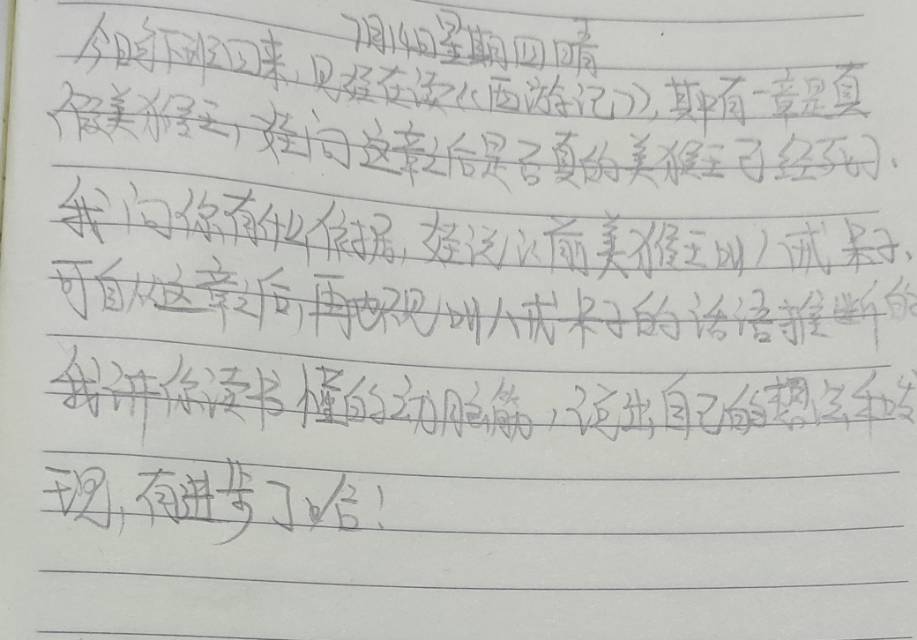 7月14日星期四 晴
今日爸下班回来,见侄在读《西游记》,其中有一章是真
假美猴王,侄问这章之后是否真的美猴王已经死了.
我问你有什么依据,侄说以前美猴王叫八戒呆子、
可自从这章之后,再也没叫八戒呆子的话语推断的
我讲你读书懂的动脑筋,说出自己的想法和发
现,有进步了哈!